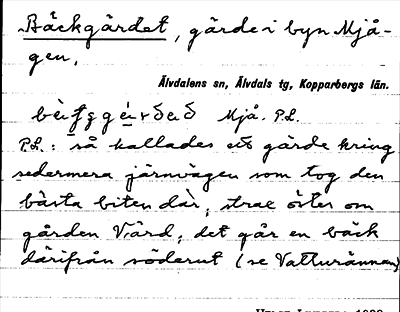 Bäckgärdet, gärde i byn Mjå-
gen.
Älvdalens sn, Älvdals tg, Kopparbergs län.
Mjå. P.L.
P.L.: så kallades ett gärde kring
sedermera järnvägen som tog den
bästa biten där, strax öster om
gården Vård, det går en bäck
därifrån söderut (se Vatturännan)